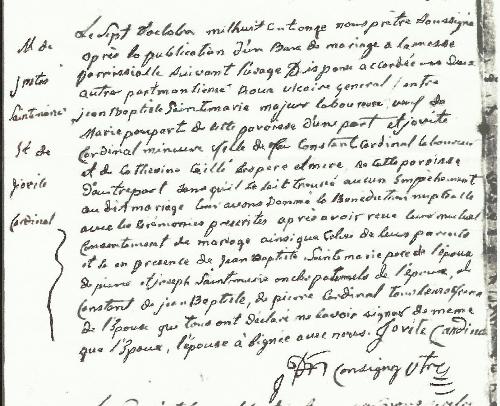 M de
jBtes
Saintemarie
Et de
Jovite
Cardinal
Le Sept d'octobre milhuit Cent onze nous prêtre Soussigné
après la publication d'un Banc de mariage a la messe
parroissialle Suivant l'usage Dispense accordée des Deux
autres par monsieur Roux vicaire general entre
jean Baptiste Saintemarie majeur laboureur, veuf de
Marie poupart de cette paroisse d'un part et jovite
Cardinal mineure fille de feu Constant Cardinal laboureur
et de Catherine Caillé Ses pere et mere de cette paroisse
d'autre part sans qu'il Se Soit trouvé aucun Empêchement
au dit mariage Leur avons Donné la Benediction nuptialle
avec les Cérémonies prescrites après avoir reçu leur mutuel
Consentement de mariage ainsi que Celui de leurs parents
et ce en presence de Jean Baptiste Saintemarie pere de l'époux
de pierre et joseph Saintemarie oncles paternels de l'époux, de
Constant de jean Baptiste, de pierre Cardinal tous freres
de l'Epouse qui tous ont déclaré ne Savoir signer de meme
que l'Epoux, l'épouse a signée avec nous. Jovite Cardinal
Consigny Ptre